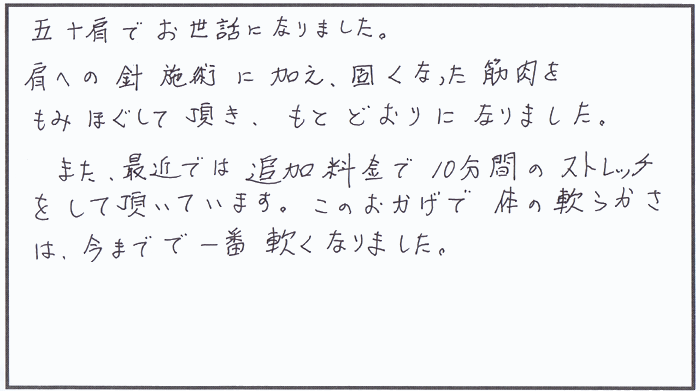 五十肩でお世話になりました。
肩への針施術に加え、固くなった筋肉を
もみほぐして頂き、もとどおりになりました。
また、最近では追加料金で10分間のストレッチ
をして頂いています。このおかげで体の軟らかさ
は、今までで一番軟くなりました。